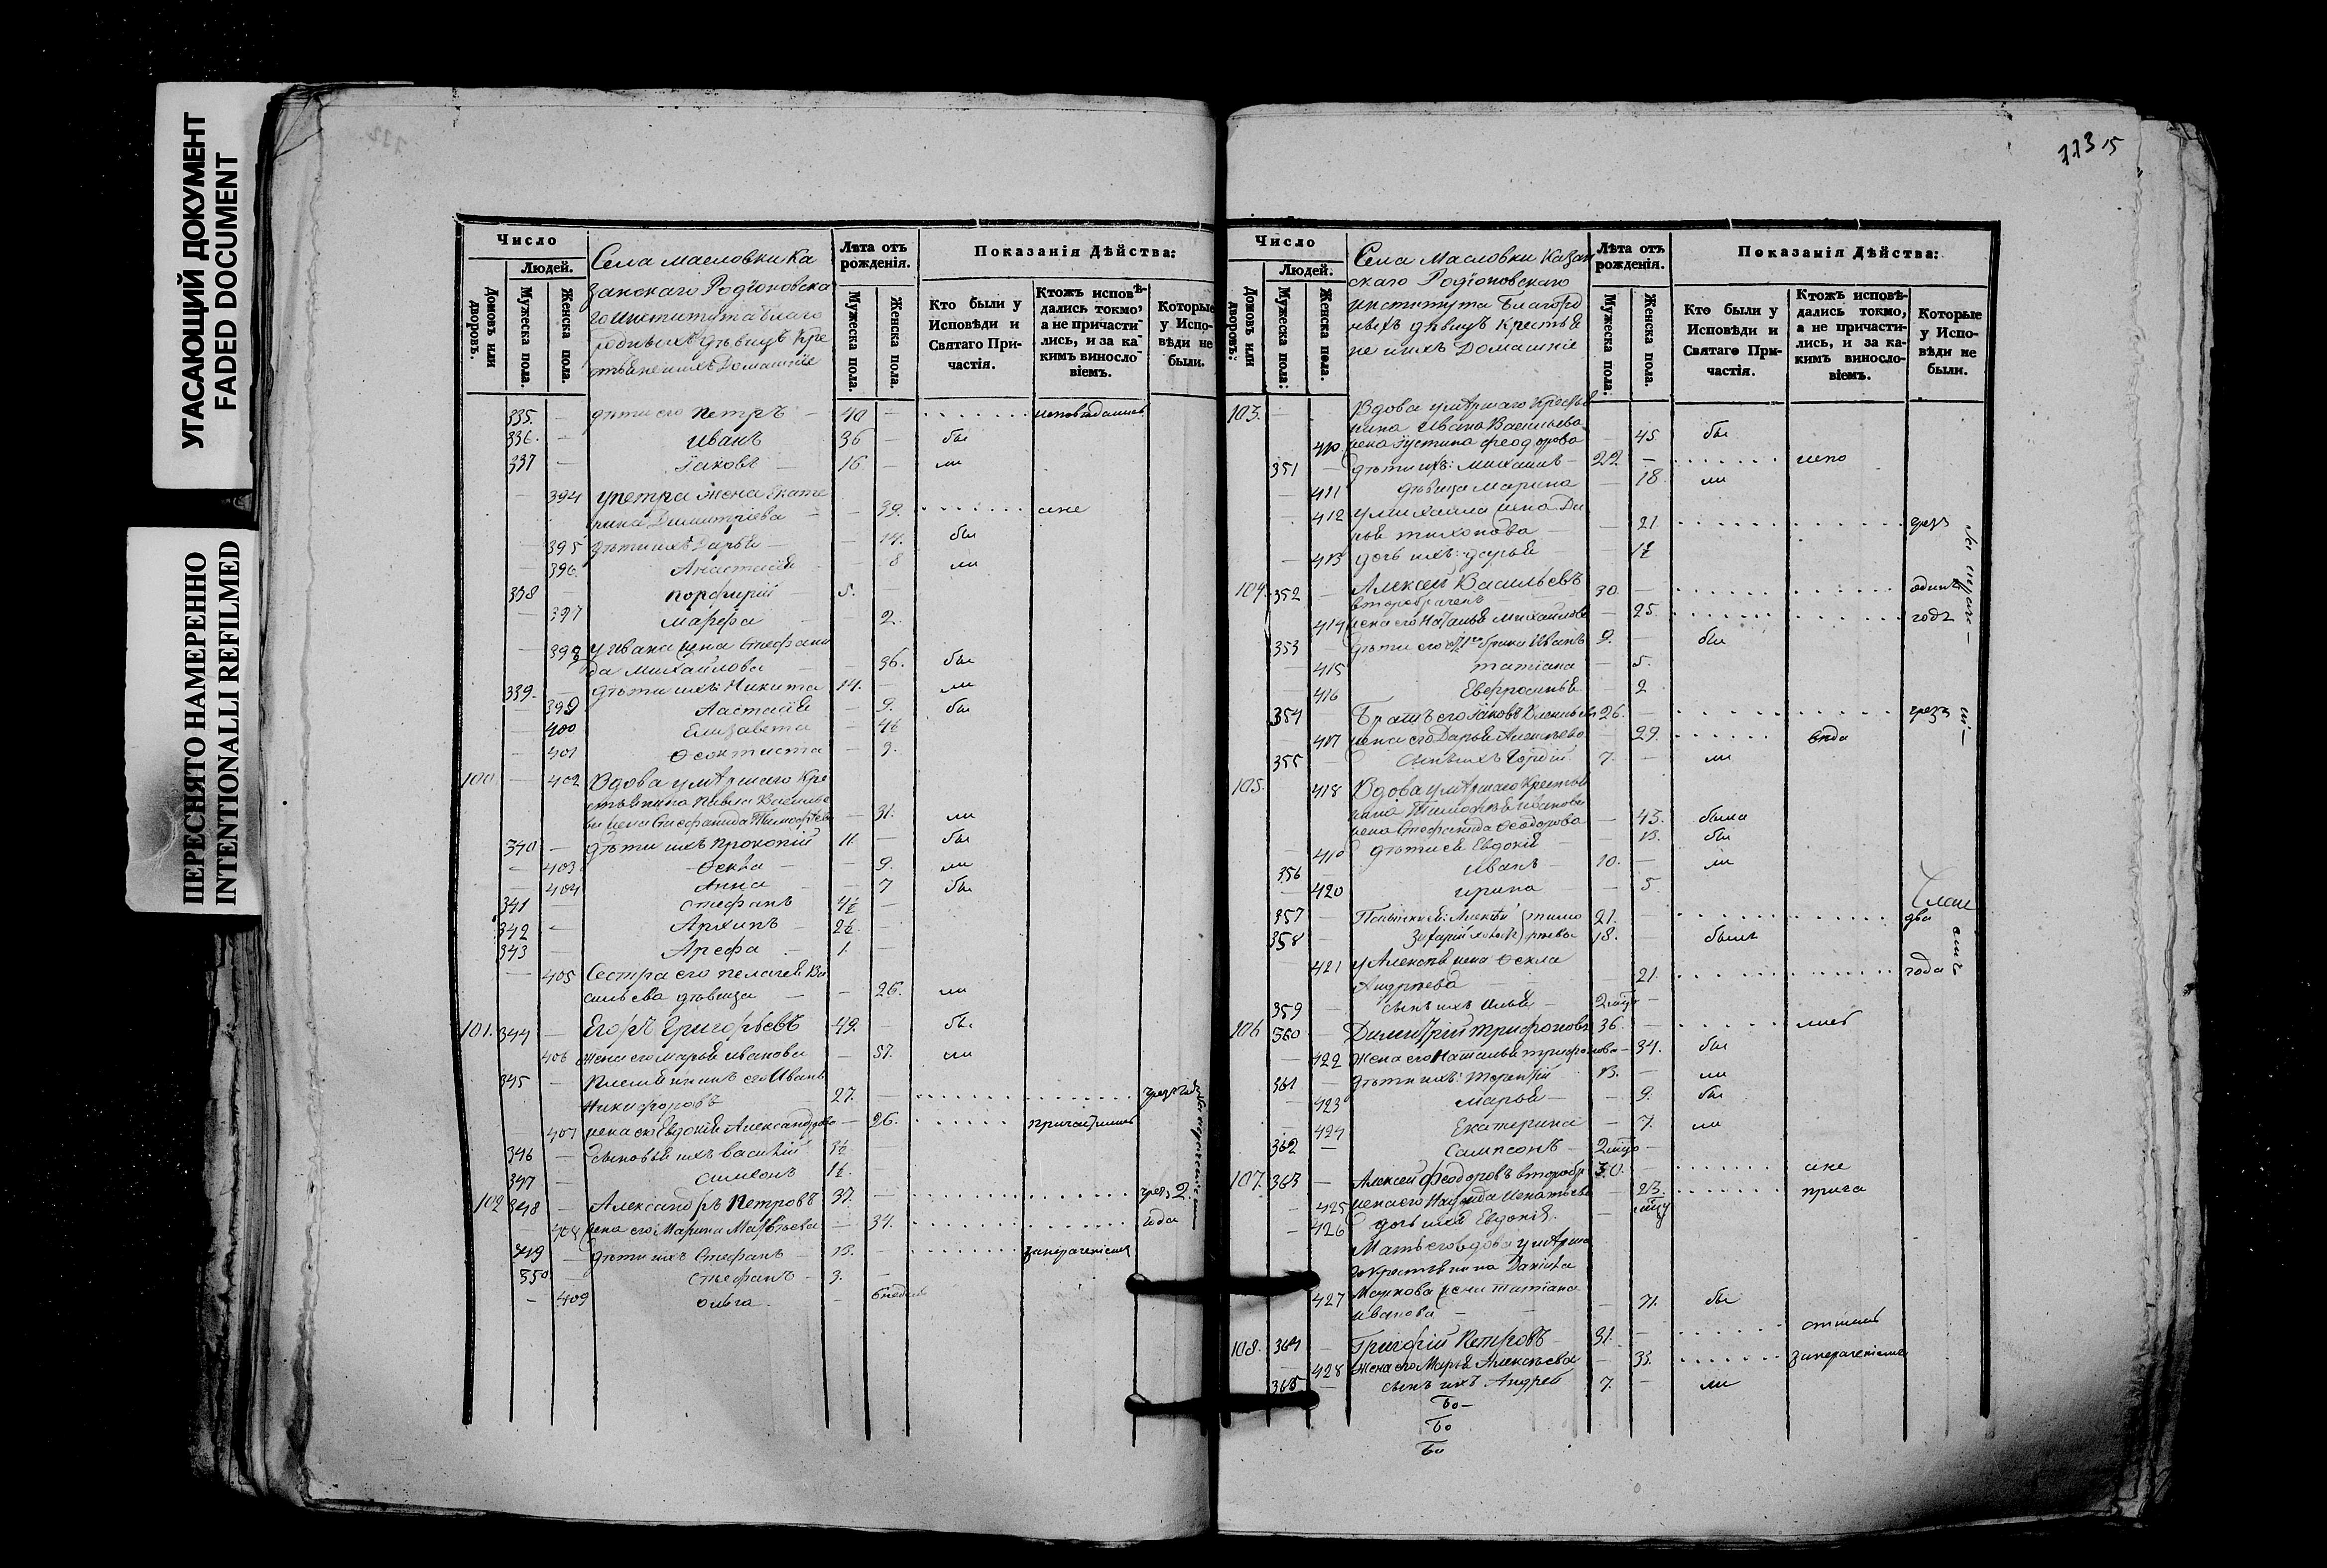 УГАСАЮЩИЙ ДОКУМЕНТ
FADED DOCUMENT
ПЕРЕСНЯТО НАМЕРЕННО
INTENTIONALLI REFILMED
Число
Людей.
Домовъ или дворовъ.
Мужеска пола.
Женска пола.
Села Масловки Ка
занскаго Родіоновска
го института Благо
родныхъ дѣвицъ Кре
стьяне и ихъ Домашніе
Лѣта отъ рожденія.
Мужеска пола.
Женска пола.
Показанія Дѣйства:
Кто были у Исповѣди и Святаго Причастія.
Ктожъ исповѣдались токмо, а не причастились, и за какимъ винословіемъ.
Которые у Исповѣди не были.
335. — дѣти его Петръ — 40 — исповѣдались
336. — Иванъ 36 — бы
337 — Іаковъ — 16 — ли
394 у Петра жена Екате
рина Димитріева — 39. и не
395 дѣти ихъ Дарья — 14. бы
396. Анастасія — 8 ли
338 — Порфирій — 5. —
397 Марфа — 2.
398 у Ивана жена Стефани
да Михайлова — 36. бы
339. — дѣти ихъ: Никита 14. — ли
399 Настасія — 9. бы
400 Елизавета — 4½
401 Ѳеоктиста — 3.
100 — 402 Вдова умершаго Кре
стьянина Павла Василье
ва жена Стефанида Тимофѣева — 31. ли
340 — дѣти ихъ Прокопій 11. — бы
403 Ѳекла — 9. ли
404 Анна — 7 бы
341 Стефанъ 4½ —
342 — Архипъ — 2½ —
343 — Арефа 1. —
405 Сестра его Пелагея Ва
сильева дѣвица — 26. ли
101. 344 — Егоръ Григорьевъ 49. — бы
406 жена его Марья Иванова — 57. ли
345 — Племянникъ его Иванъ
Никифоровъ 27. —
407 жена его Евдокія Александрова — 26. причастились
346 — сыновья ихъ Василій 3½
347 — Симеонъ 1½. —
102 348 — Александръ Петровъ 37. — чрезъ 2.
408 жена его Марина Матвѣева — 34. года
349 — дѣти ихъ Стефанъ — 13. — занерачениемъ
350 — Стефанъ — 3. —
409 Ольга — 6 недѣль
113 15
Число
Людей.
Домовъ или дворовъ:
Мужеска пола:
Женска пола.
Села Масловки Казан
скаго Родіоновскаго
института Благоро
дныхъ дѣвицъ Крестья
не и ихъ Домашніе
Лѣта отъ рожденія.
Мужеска пола.
Женска пола.
Показанія Дѣйства:
Кто были у Исповѣди и Святаго Причастія.
Ктожъ исповѣдались токмо, а не причастились, и за какимъ винословіемъ.
Которые у Исповѣди не были.
103. — Вдова умершаго Кресть
янина Ивана Васильева
410 жена Іустина Феодорова — 45 бы
351 — дѣти ихъ: Михаилъ — 22 — испо
411 дѣвица Марина — 18. ли
412 у Михаила жена Да
рья Тихонова — 21. чрез
413 дочь ихъ: Дарья — 1½
104. 352 — Алексей Васильевъ 30. — одинъ
второбрачен
414 жена его Наталья Михайлова — 25. годъ
353 — дѣти его отъ 1го брака Иванъ 9. — бы
415 Татіана — 5.
416 Евфросинья — 2
354 — Братъ его Іаковъ Васильевъ 26. — чрезъ
417 жена его Дарья Алексѣева — 29. вѣда
355 сынъ ихъ Гордій 7. — ли
105. 418 Вдова умершаго Крестья
нина Тимофея Иванова
жена Стефанида Ѳеодорова — 43. была
419 дѣти ея Евдокія — 13. бы
356 — Иванъ — 10. — ли
420 Ирина — 5.
357 — Пасынки ея: Алексѣй Тимо 21. — два
358 — Захарій холост феевы 18. — былъ
421 у Алексѣя жена Ѳекла
Андреева — 21. года
359 — сынъ ихъ Илья — 2 мѣсяца —
106 360 — Димитрій Трифоновъ 36. — лись
422 жена его Наталья Трифонова — 34. бы
361 — дѣти ихъ: Терентій 13. — ли
423 Марья — 9. бы
424 Екатерина — 7. ли
362 — Сампсонъ — 2 мѣсяца —
107. 363 — Алексей Феодоровъ второбр 30. — и не
425 жена его Игнатьева — 23. прича
426 дочь ихъ Евдокія. —
Мать его вдова умерша
го Крестьянина Даніила
427 Маркова жена Татіана
Иванова — 71. бы
108. 364 — Григорій Петровъ — 31. — стились
428 жена его Марья Алексѣева — 33. занерачениемъ
365 — сынъ ихъ Андрей 7. — ли
Бо—
Бо
Бо